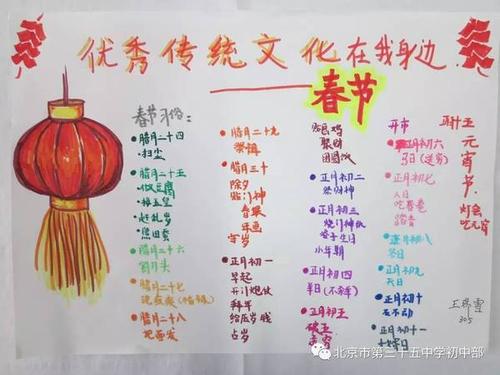 优秀传统文化在我身边
春节
春节习俗：
腊月二十四
扫尘
腊月二十五
做豆腐
接玉皇
赶乱岁
照田蚕
腊月二十六
腊月二十七
腊月二十八
腊月二十九
腊月三十
除夕
贴门神
春联
年画
守岁
正月初一
早起
开门炮仗
拜年
给压岁钱
占岁
聚财
团圆饭
正月初二
祭财神
正月初三
烧门神纸
小年朝
正月初四
羊日(不宰羊)
正月初五
破五
开市
正月初六
正月初七
人日
踏青
正月初八
谷日
正月初九
天日
正月初十
石不动
正月初十一
元宵节
灯会
吃元宵
王瑞雪
305
北京市第三十五中学初中部